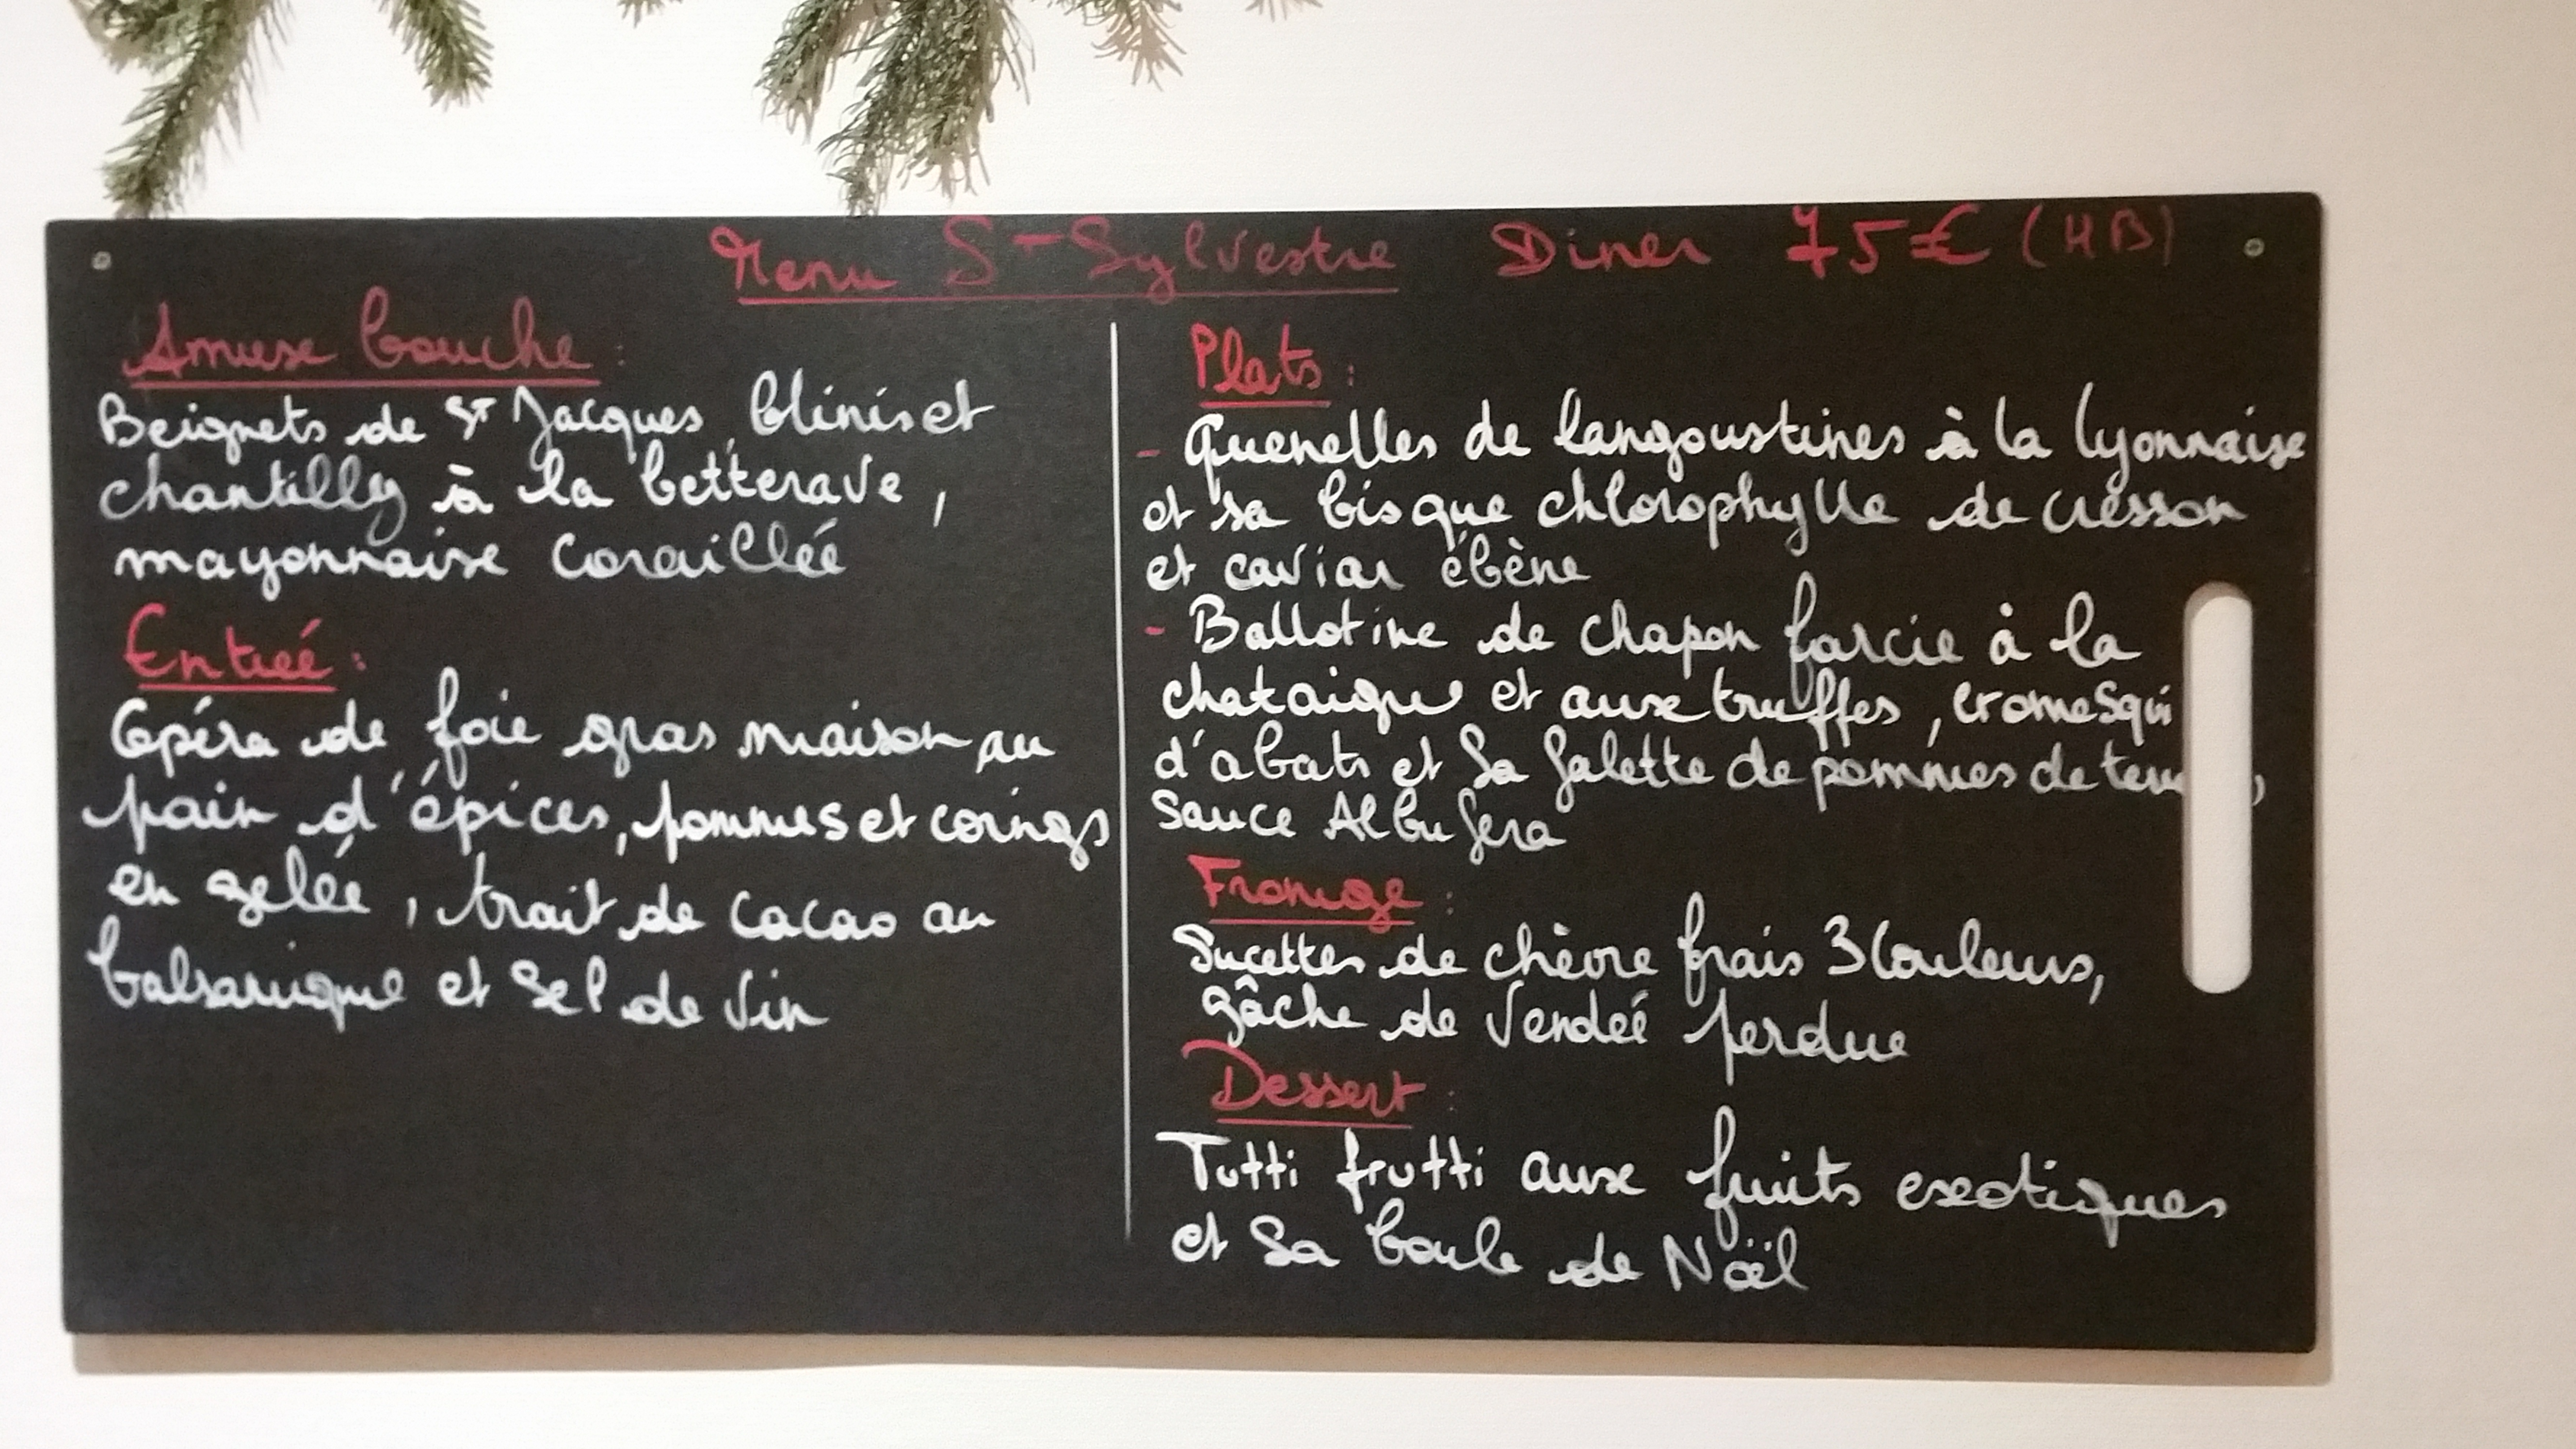 Menu St-Sylvestre Diner 75€ (HB)
Amuse bouche :
Beignets de St Jacques, blinis et
chantilly à la betterave,
mayonnaise coraillée
Entrée :
Opéra de foie gras maison au
pain d'épices, pommes et coings
en gelée, trait de cacao au
balsamique et sel de vin
Plats :
- Quenelles de langoustines à la lyonnaise
et sa bisque chlorophylle de cresson
et caviar ébène
- Ballotine de chapon farcie à la
chataigne et aux truffes, cromesqui
d'abats et sa galette de pommes de terre,
sauce Albufera
Fromage :
Sucettes de chèvre frais 3 couleurs,
gâche de Vendée perdue
Dessert :
Tutti frutti aux fruits exotiques
et sa boule de Noël